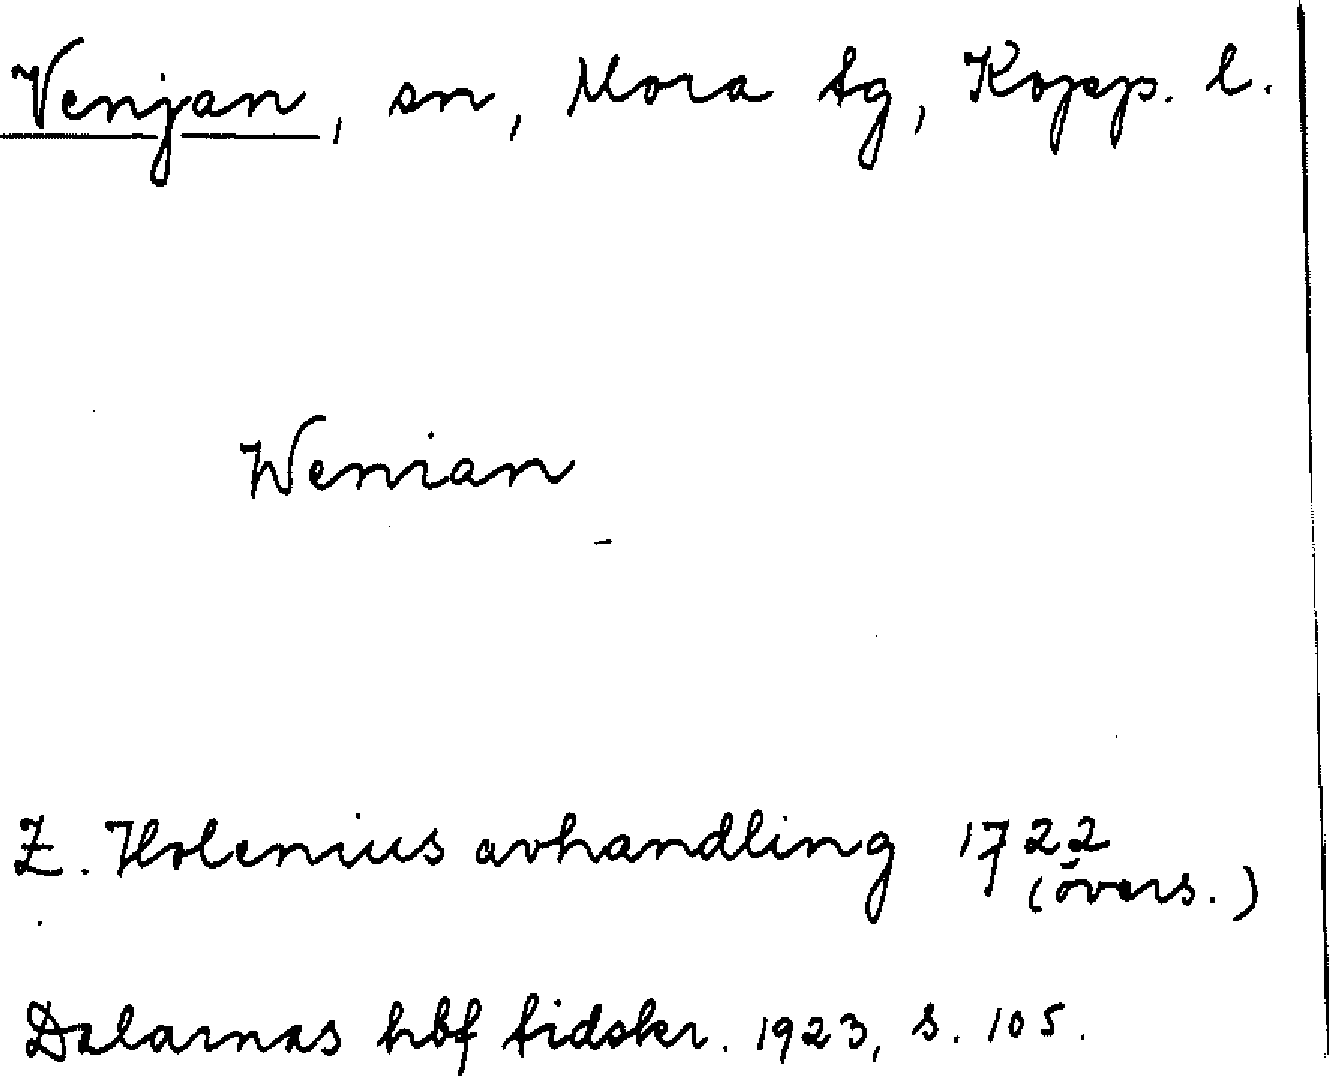 Venjan, sn, Mora tg, Kopp. l.
Wenian
Z. Holenius avhandling 1722
(övers.)
Dalarnas hbf tidskr. 1923, s. 105.